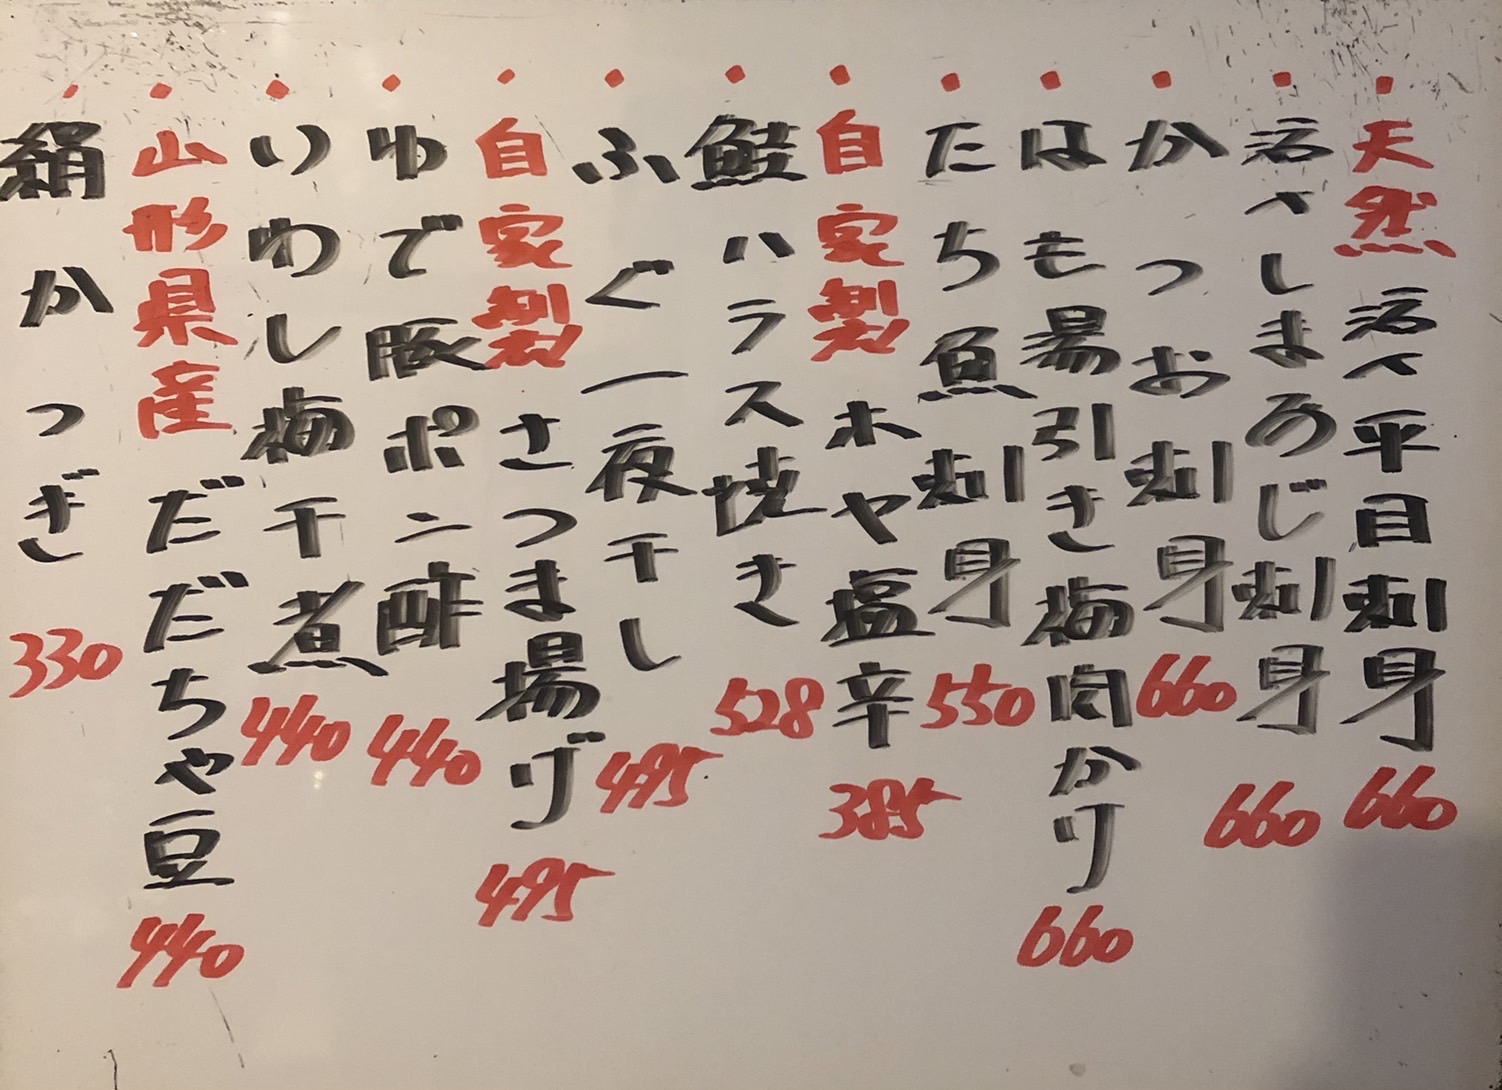 天然活〆平目刺身 660
活〆しまあじ刺身 660
かつお刺身 660
はも湯引き梅肉かけ 660
たち魚刺身 550
自家製ホヤ塩辛 385
鮭ハラス焼き 528
ふぐ一夜干し 495
自家製さつま揚げ 495
ゆで豚ポン酢 440
いわし梅干煮 440
山形県産だだちゃ豆 440
絹かつぎ 330